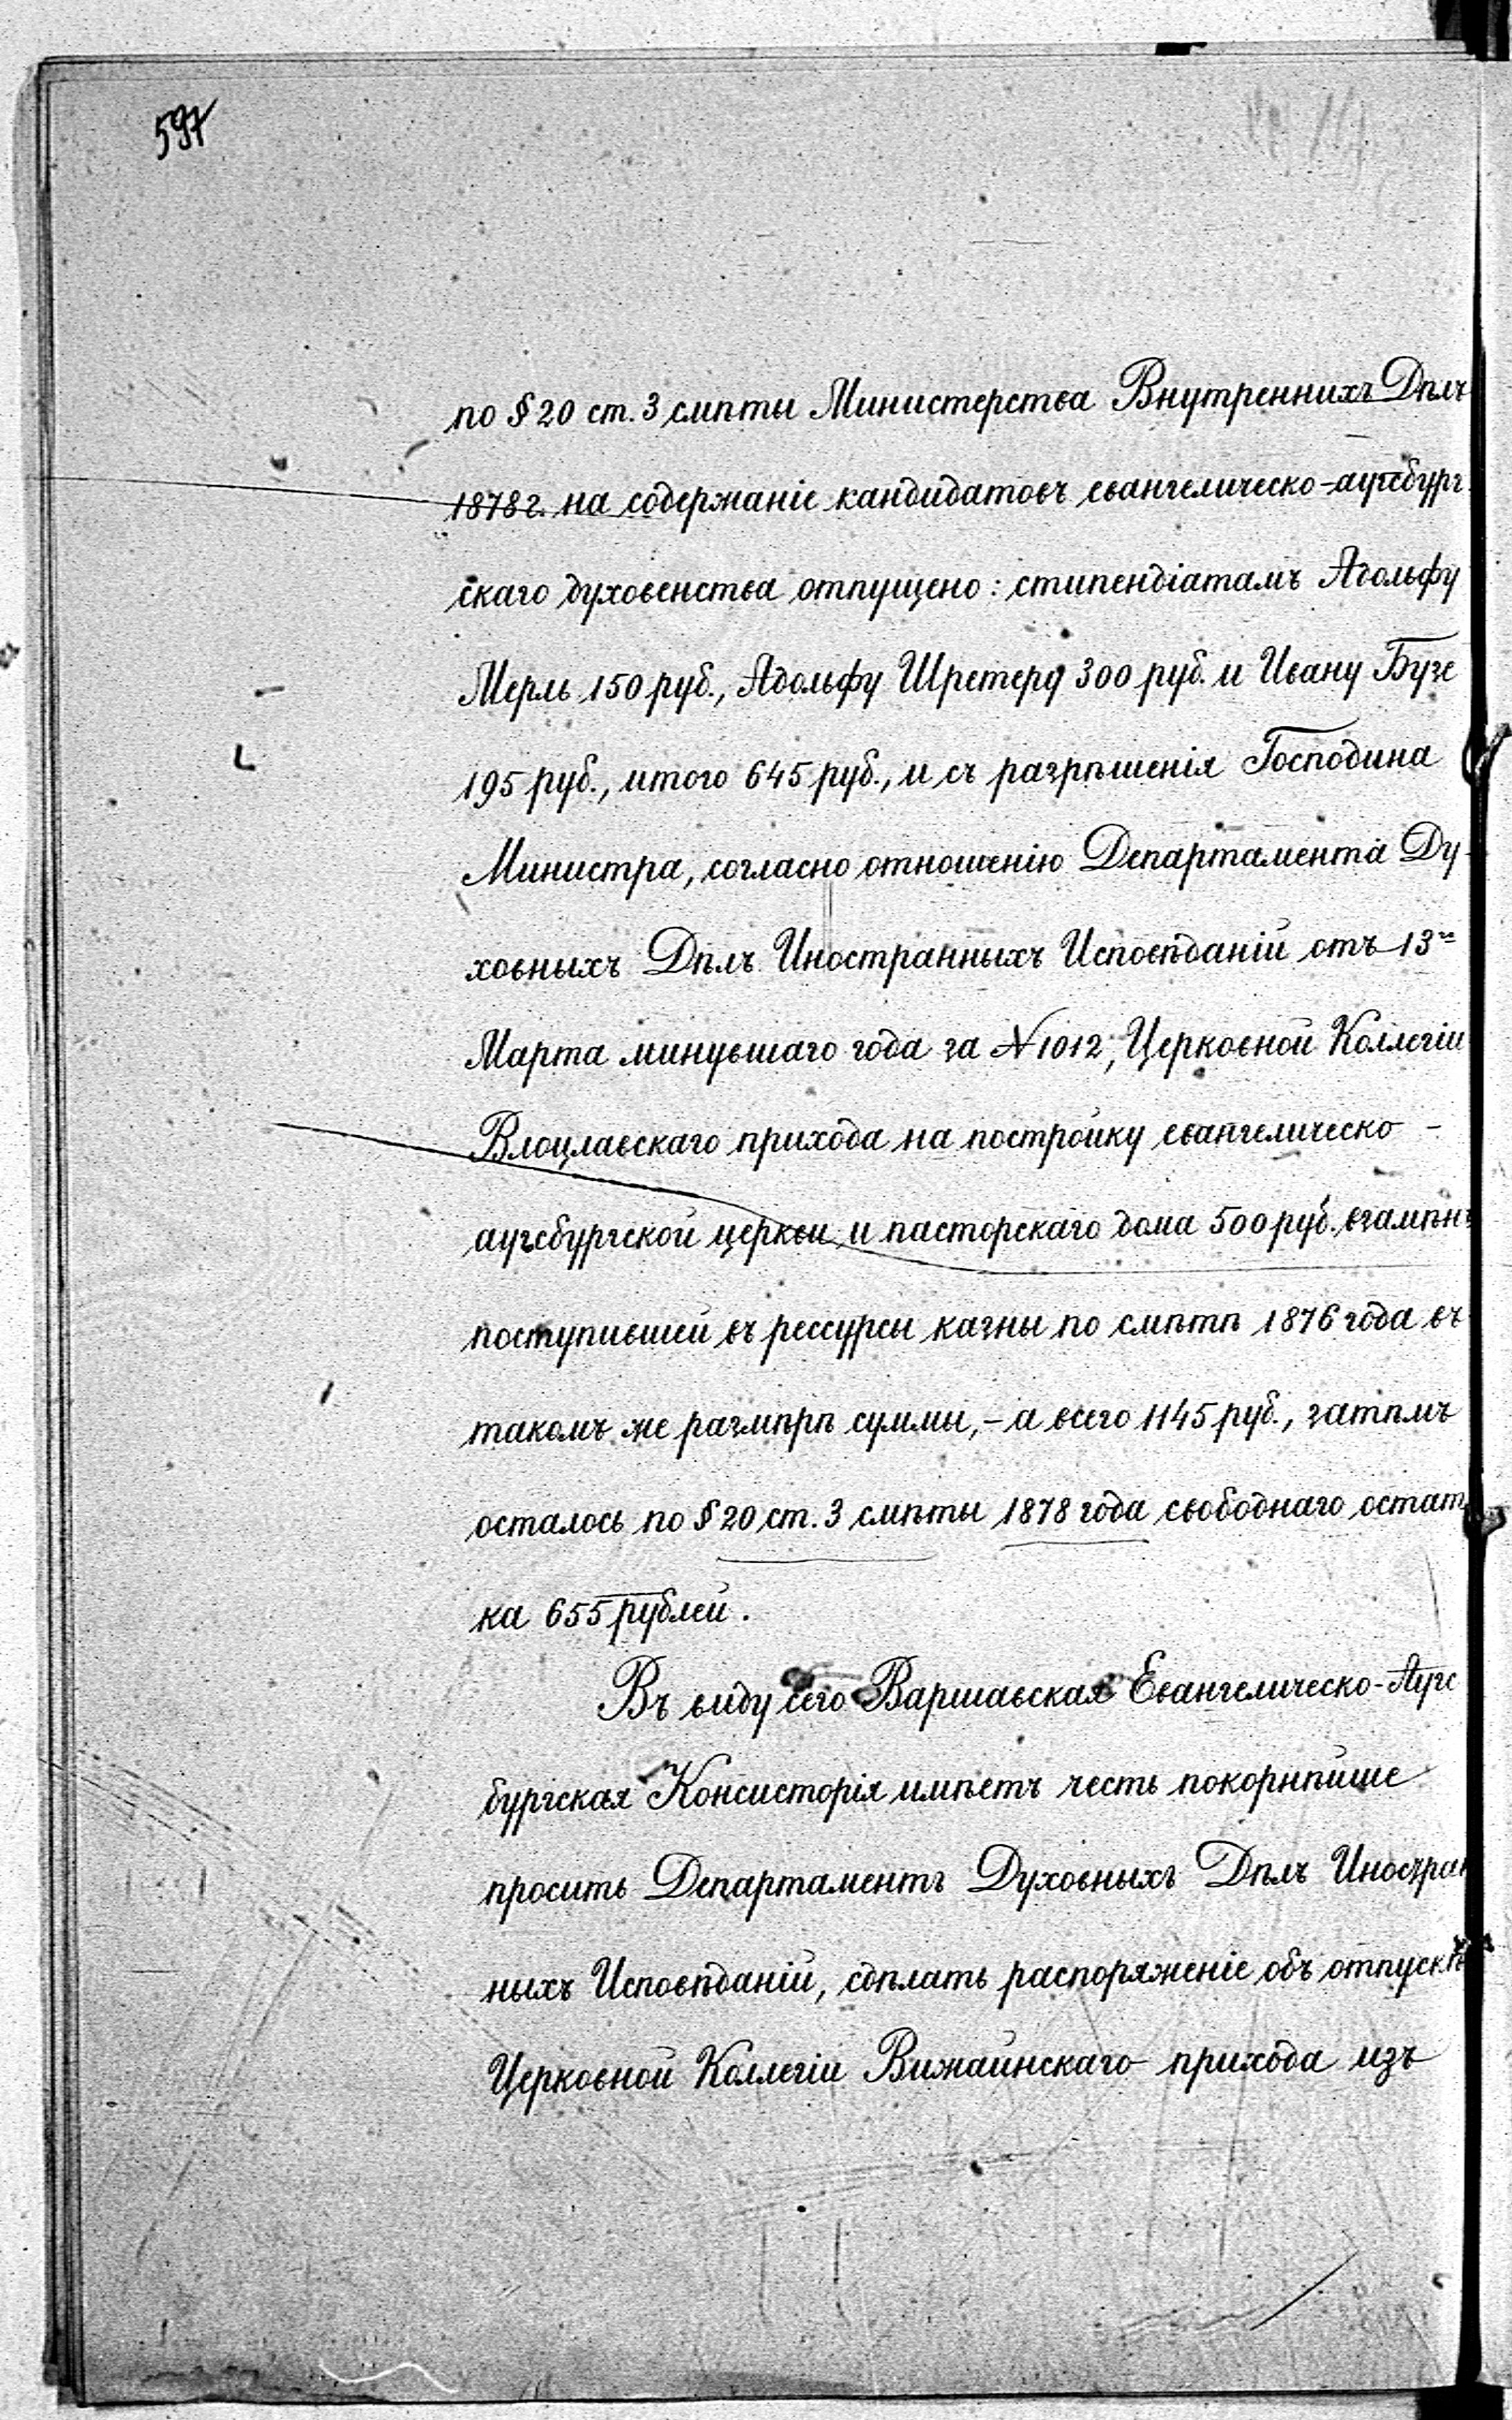 597
по § 20 ст. 3 смѣты Министерства Внутреннихъ Дѣлъ
1878 г. на содержаніе кандидатовъ евангелическо-аугсбург
скаго духовенства отпущено: стипендіатамъ Адольфу
Мерль 150 руб., Адольфу Шретеру 300 руб. и Ивану Бузе
195 руб., итого 645 руб., и съ разрѣшенія Господина
Министра, согласно отношенію Департамента Ду-
ховныхъ Дѣлъ Иностранныхъ Исповѣданій отъ 13го
Марта минувшаго года за № 1012, Церковной Коллегіи
Влоцлавскаго прихода на постройку евангелическо-
аугсбургской церкви и пасторскаго дома 500 руб. взамѣнъ
поступившей въ рессурсы казны по смѣтѣ 1876 года въ
такомъ же размѣрѣ суммы, - а всего 1145 руб., затѣмъ
осталось по § 20 ст. 3 смѣты 1878 года свободнаго остат
ка 655 рублей.
Въ виду сего Варшавская Евангелическо-Аугс
бургская Консисторія имѣетъ честь покорнѣйше
просить Департаментъ Духовныхъ Дѣлъ Иностран
ныхъ Исповѣданій, сдѣлать распоряженіе объ отпускѣ
Церковной Коллегіи Вижайнскаго прихода изъ